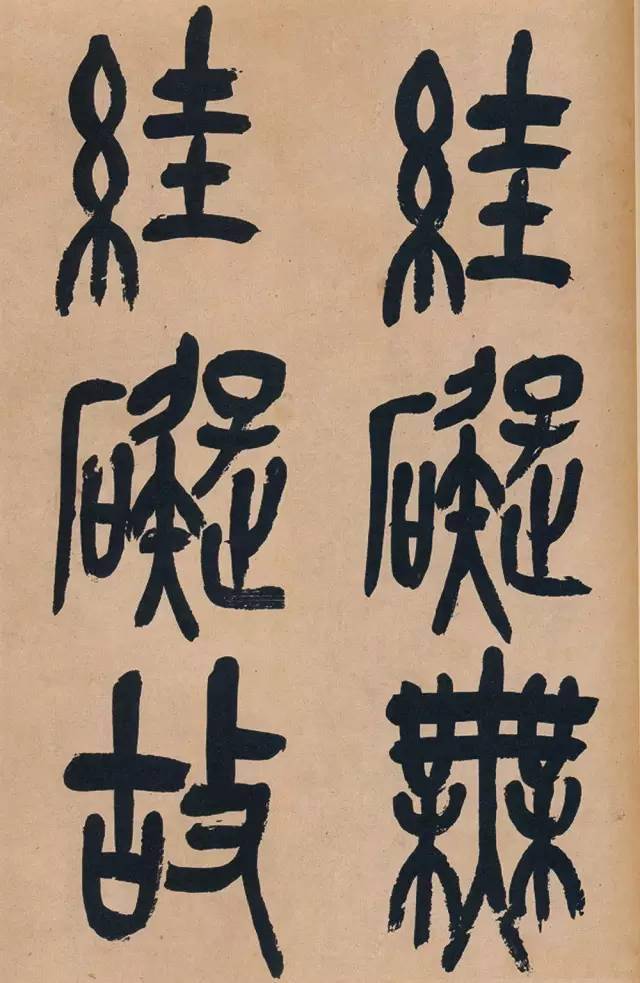 絓礙無
絓礙故